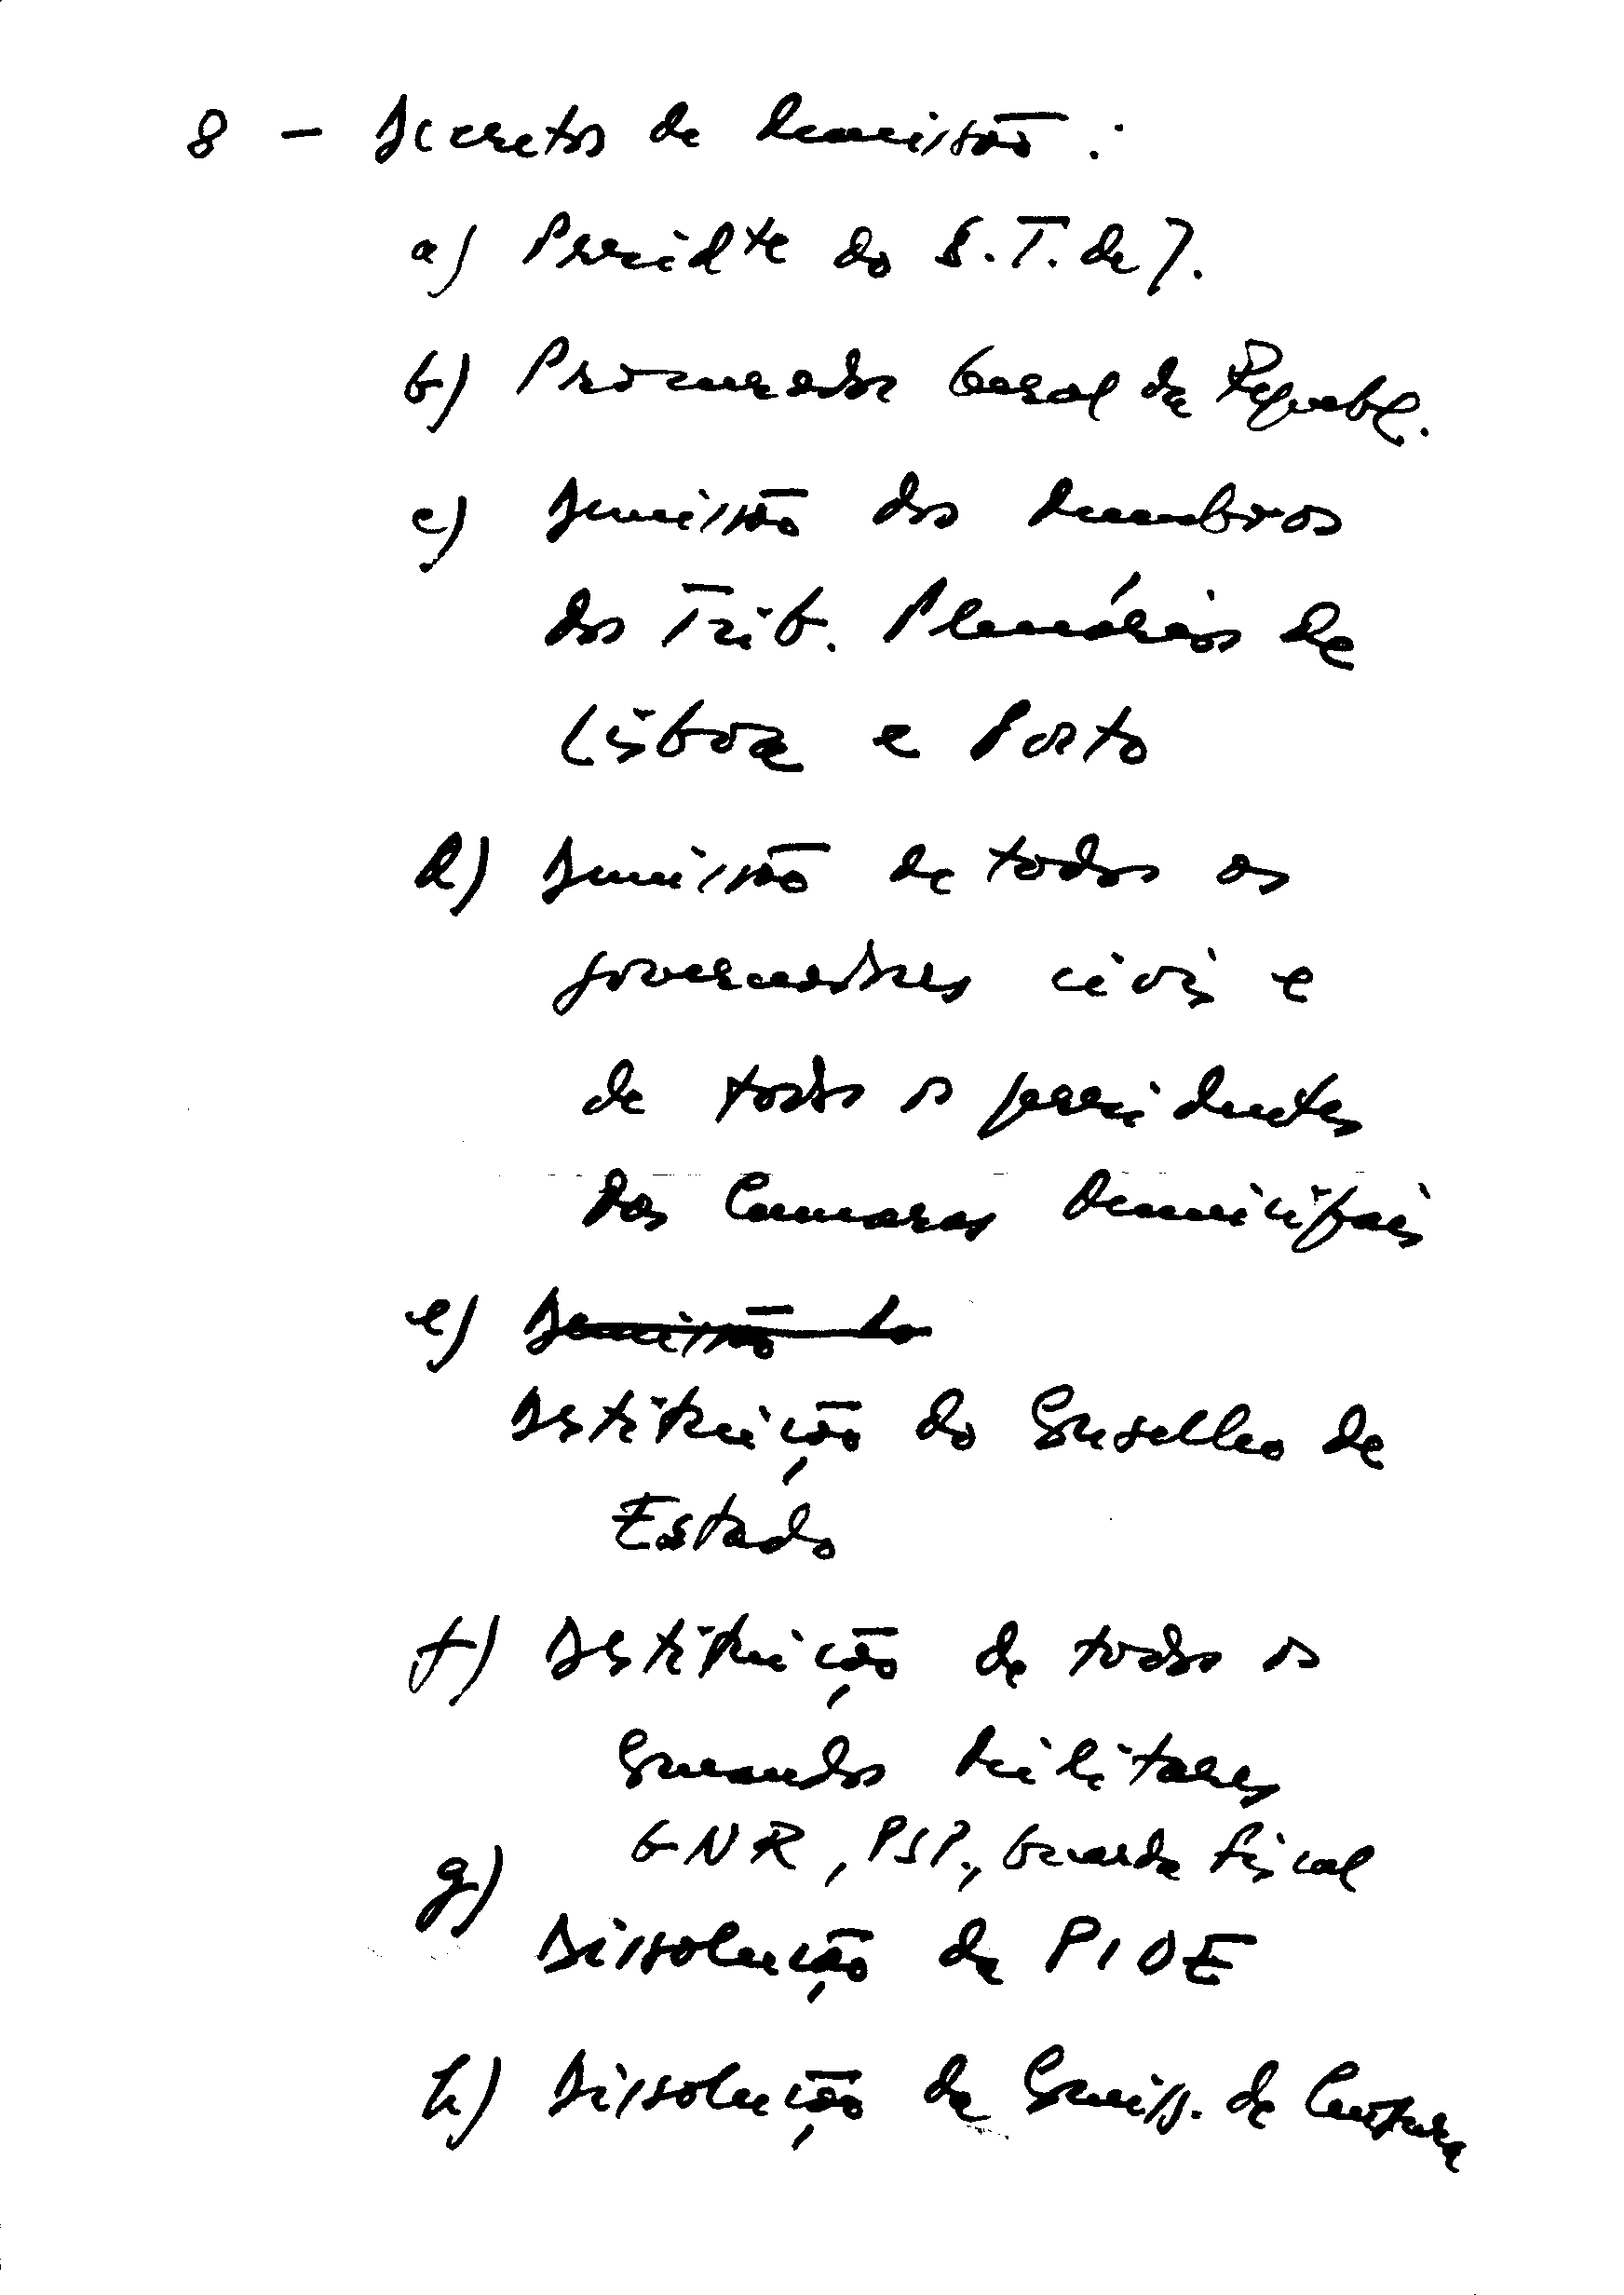 8 - Decretos de demissão :
a) Presidte do S.T. de J.
b) Procurador Geral da Republ.
c) Demissão dos membros
dos Trib. Plenários de
Lisboa e Porto
d) Demissão de todos os
governadores civis e
de todos os presidentes
das Camaras Municipais
e) Demissão do
Destituição do Conselho de
Estado
f) Destituição de todos os
Comandos Militares
GNR, PSP., Guarda Fiscal
g)
Dissolução da PIDE
h) Dissolução da Comiss. de Censura